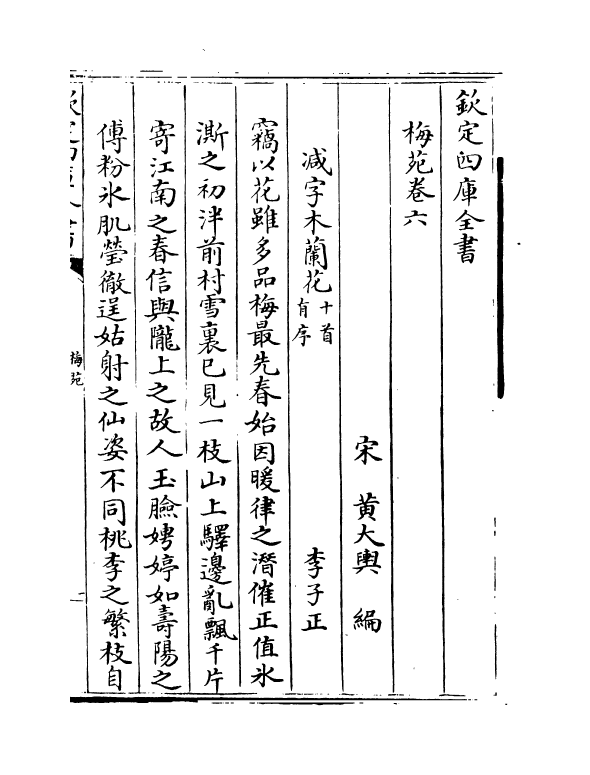 欽定四庫全書
梅苑卷六
宋 黃大輿 編
减字木蘭花十首有序 李子正
竊以花雖多品梅最先春始因暖律之潛催正值氷
澌之初泮前村雪裏已見一枝山上驛邊亂飄千片
寄江南之春信與隴上之故人玉臉娉婷如壽陽之
傅粉氷肌瑩徹逞姑射之仙姿不同桃李之繁枝自
梅苑